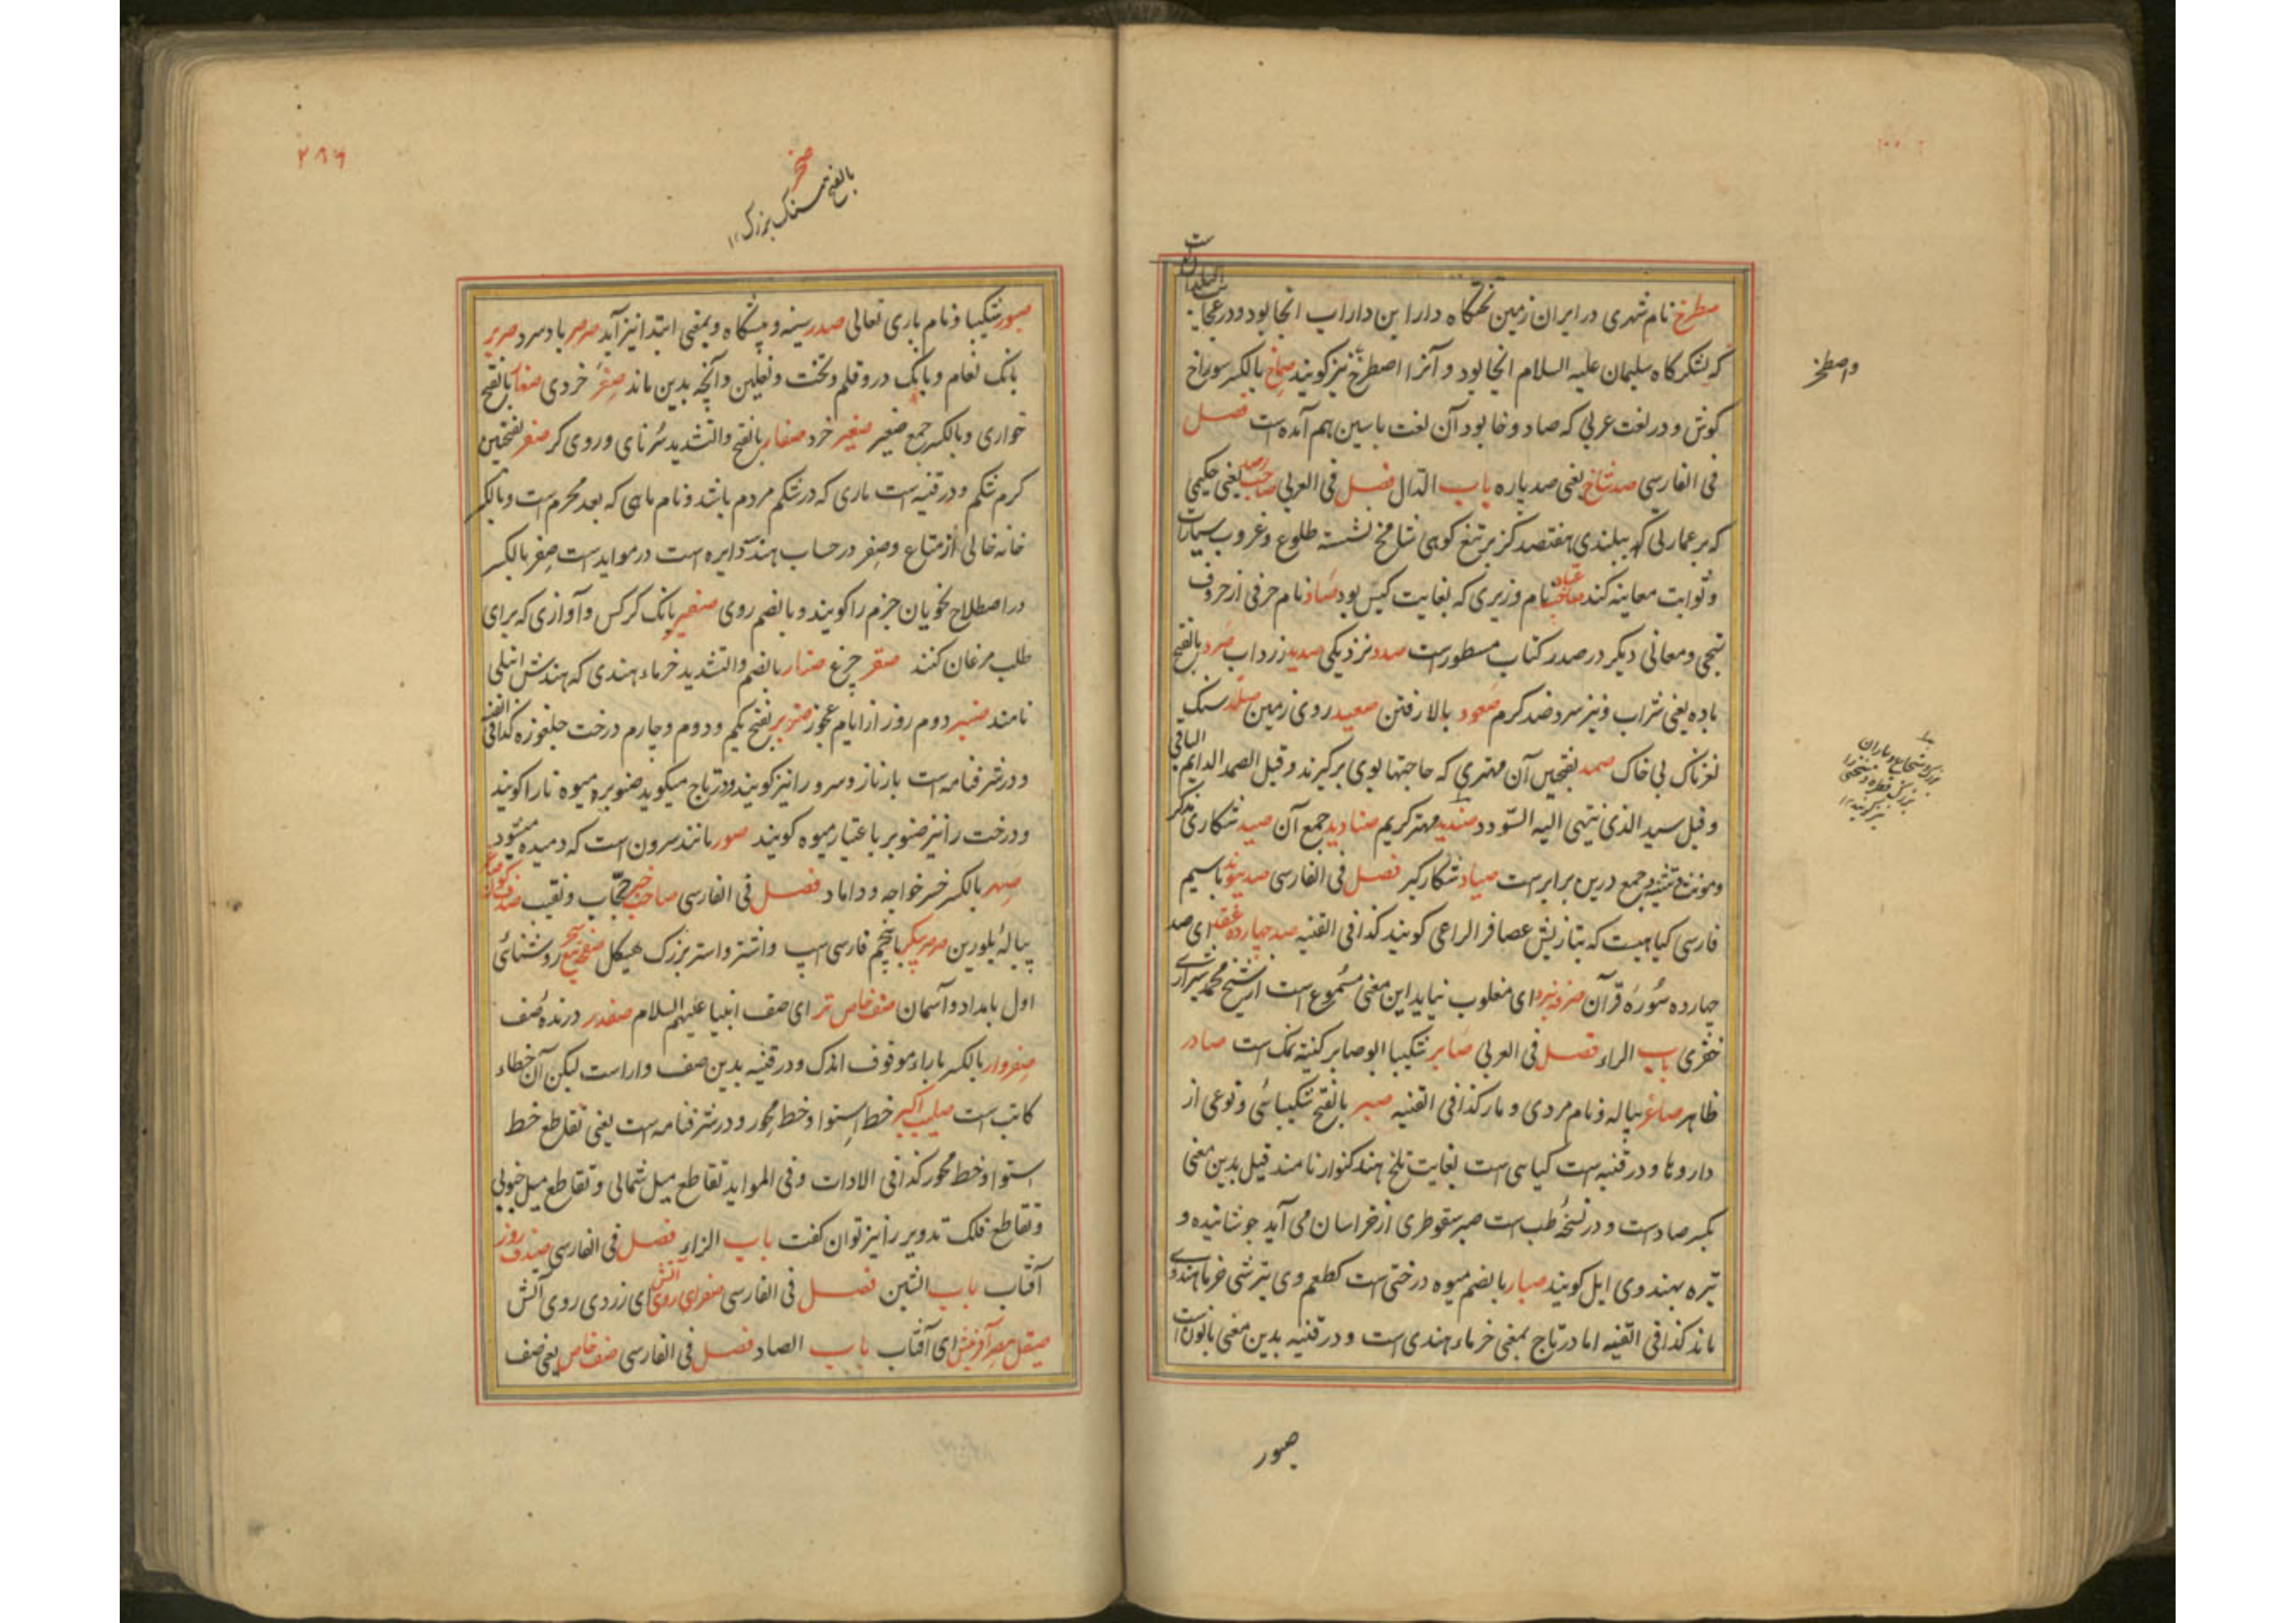 صطرخ نام شهری در ایران زمین تختگاه دارا بن داراب انجا بود و در عجایب البلدان است
که لشکرگاه سلیمان علیه السلام انجا بود و آنرا اصطرخ نیز گویند صماخ بالکسر سوراخ
گوش و در لغت عربی که صاد و خا بود آن لغت با سین هم آمده است فصل
فی الفارسی صد شاخ یعنی صد پاره باب الدال فصل فی العربی صاحب رصد یعنی حکیمی
که بر عمارتی که ببلندی هفتصد گز بر تیغ کوهی شامخ نشسته طلوع و غروب سیارات
و ثوابت معاینه کند صاحب عباد نام وزیری که بغایت کیس بود صاد نام حرفی از حروف
تهجی و معانی دیگر در صدر کتاب مسطورست صدد نزدیکی صدید زرداب صرد بالفتح
باده یعنی شراب و نیز سرد ضد گرم صعود بالا رفتن صعید روی زمین صلد سنک
لغزناک بی خاک صمد بفتحین آن مهتری که حاجتها بوی برگیرند و قیل الصمد الدایم الباقی
و قیل سید الذی ینتهی الیه السودد صندید مهتر کریم صنادید جمع آن صید شکاری مذکر
و مونث و تثنیه و جمع درین برابرست صیاد شکارگیر فصل فی الفارسی صد پیوند باسیم
فارسی گیاهیست که بتازیش عصافر الراعی گویند کذا فی القنیه صد چهارده عقد ای صد
چهارده سوره قرآن صرفه نبرد ای مغلوب نیاید این معنی مسموع است از شیخ محمد شیرازی
خضری باب الراء فصل فی العربی صابر شکیبا ابو صابر کنیته نمک است صادر
ظاهر صاغر پیاله و نام مردی و مار کذا فی القنیه صبر بالفتح شکیبائی و نوعی از
داروها و در قنیه است گیاهی است بغایت تلخ هند کنوار نامند قیل بدین معنی
بکسر صادست و در نسخهٔ طب است صبر سقوطری از خراسان می آید جوشانیده و
تیره بهندوی ایل گویند صبار بالضم میوه درختی است که طعم وی بترشی خرما هندوی
ماند کذا فی القنیه اما در تاج بمعنی خرماء هندی است و در قنیه بدین معنی بانون است
واصطخر
صبور
صخر
بالفتح سنک بزرک ۱۲
۲۸۶
صبور شکیبا و نام باری تعالی صدر سینه و پیشگاه و بمعنی ابتدا نیز آید صرصر باد سرد صریر
بانک نعام و بانک در و قلم و تخت و نعلین و آنچه بدین ماند صغر خردی صغار بالفتح
خواری و بالکسر جمع صغیر صغیر خرد صفار بالفتح والتشدید سرنای و روی گر صفر بفتحین
کرم شکم و در قنیه است ماری که در شکم مردم باشد و نام ماهی که بعد محرم است و بالکسر
خانه خالی از متاع و صفر در حساب هند دایره است در مواید است صفر بالکسر
در اصطلاح نحویان جزم را گویند و بالضم روی صفیر بانک کرکس و آوازی که برای
طلب مرغان کنند صقر چرغ صنار بالضم والتشدید خرماء هندی که هندش انبلی
نامند صنبر دوم روز از ایام عجوز صنوبر بفتح یکم و دوم و چارم درخت جلغوزه کذا فی القنیه
و در شرفنامه است بار ناز و سرو را نیز گویند و در تاج میگوید صنوبره میوه نار را گویند
و درخت را نیز صنوبر باعتبار میوه گویند صور مانند سرون است که دمیده میشود
صهر بالکسر خسر خواجه و داماد فصل فی الفارسی صاحب خبر حجاب و نقیب
پیالهٔ بلورین صرصر پیکر با جیم فارسی اسپ و اشتر و استر بزرک هیکل صفحه تیغ سحر روشنائی
اول بامداد و آسمان صف خاص تر ای صف انبیا علیهم السلام صفدر درندهٔ صف
صفروار بالکسر با راء موقوف اندک و در قنیه بدین صف وار است لیکن آن خطاء
کاتب است صلیب اکبر خط استوا و خط محور و در شرفنامه است یعنی تقاطع خط
استوا و خط محور کذا فی الادات و فی الموايد تقاطع میل شمالی و تقاطع میل جنوبی
و تقاطع فلک تدویر را نیز توان گفت باب الزاء فصل فی الفارسی صیدف روز
آفتاب باب الشین فصل فی الفارسی صفرای روی آتش ای زردی روی آتش
صیقل مصر آفرینش ای آفتاب باب الصاد فصل فی الفارسی صف خاص یعنی صف